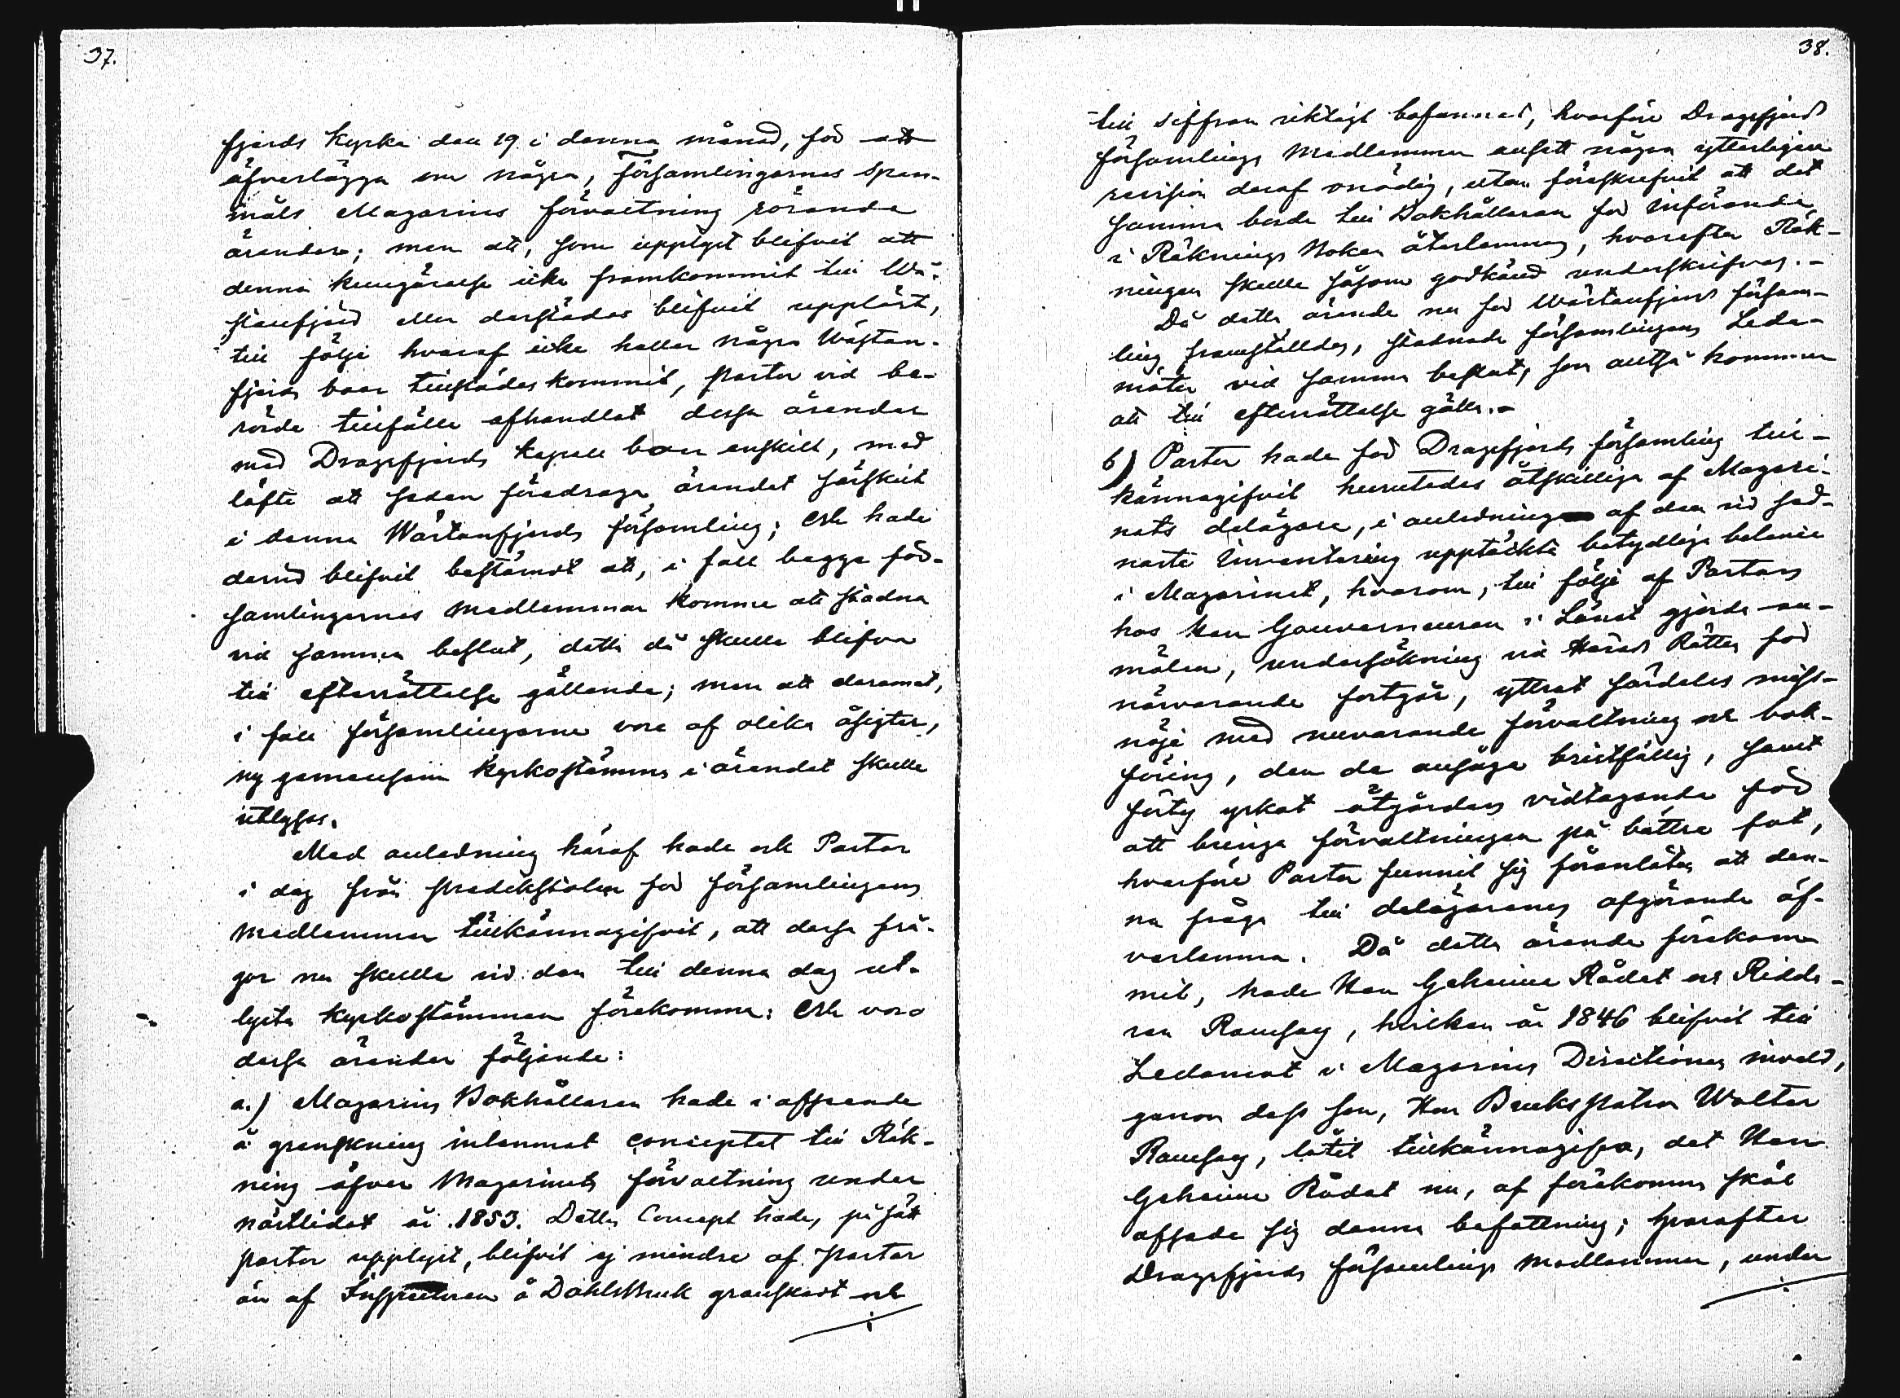 37.
fjerds Kyrka den 19 i denna månad, för att
öfverlägga om några, Församlingarnes Span-
måls Magasins förvaltning rörande
ärender; men att, som upplyst blifvit att
denna kungörelse icke framkommit till Wä-
stanfjerd eller derstädes blifvit uppläst,
till följe hvaraf icke heller några Wästan-
fjerds boer tillstädes kommit, Pastor vid be-
rörde tillfälle afhandlat dessa ärender
med Dragsfjerds Kapell boer enskilt, med
löfte att sedan föredraga ärendet särskilt
i denna Wästanfjerds församling; och hade
dervid blifvit bestämdt att, i fall begge för-
samlingarnes medlemmar komme att stadna
vid samma beslut, detta då skulle blifva
till efterrättelse gällande; men att deremot,
i fall församlingarne vore af olika åsigter,
ny gemensam kyrkostämma i ärendet skulle
utlysas.
Med anledning häraf hade och Pastor
i dag från predikstolen för församlingens
medlemmar tillkännagifvit, att dessa frå-
gor nu skulle vid den till denna dag ut-
lysta kyrkostämman förekomma: och voro
dessa ärender följande:
a.) Magasins Bokhållaren hade i afseende
å granskning inlemnat conceptet till Räk-
ning öfver Magasinets förvaltning under
nästlidet år 1853. Detta Concept hade, på sätt
pastor upplyst, blifvit ej mindre af Pastor
än af Inspectoren å Dahlsbruk granskadt och
38.
till siffran riktigt befunnet, hvarföre Dragsfjerds
församlings medlemmar ansett någon ytterligare
revision deraf onödig, utan föreskrifvit att det
samma borde till Bokhållaren för införande
i Räknings Boken återlemnas, hvarefter Räk-
ningen skulle såsom godkänd underskrifvas.-
Då detta ärende nu för Wästanfjerds försam-
ling framställdes, stadnade församlingens Leda-
möter vid samma beslut, som alltså kommer
att till efterrättelse gälla.-
b) Pastor hade för Dragsfjerds församling till-
kännagifvit hurutedes åtskillige af Magasi-
nets delägare, i anledning af den vid sed-
naste Inventering upptäckta betydliga balance
i Magasinet, hvarom, till följe af Pastors
hos Herr Gouverneuren i Länet gjorde an-
mälan, undersökning vid Härads Rätten för
närvarande fortgår, yttrat särdeles miss-
nöje med nuvarande förvaltning och bok-
föring, den de ansåge bristfällig, samt
förty yrkat åtgärders vidtagande för
att bringa förvaltningen på bättre fot,
hvarföre Pastor funnit sig föranlåten att den-
na fråga till delägarenes afgörande öf-
verlemna. Då detta ärende förekom-
mit, hade Herr Geheime Rådet och Ridda-
ren Ramsay, hvilken år 1846 blifvit till
Ledamot i Magasins Directionen invald,
genom dess son, Herr Bruks patron Wolter
Ramsay, låtit tillkännagifva, det Herr
Geheime Rådet nu, af förekomna skäl
afsade sig denna befattning; hvarefter
Dragsfjerds församlings medlemmar, under